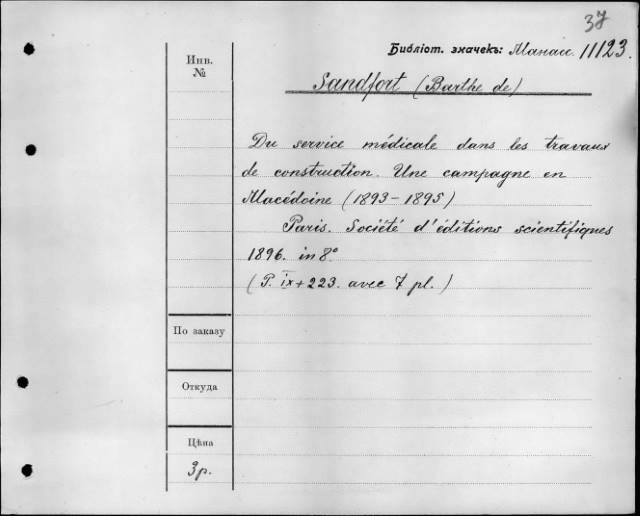 37
Библіот. значекъ: Манас. 11123.
Инв.
№
Sandfort (Barthe de)
Du service médicale dans les travaux
de construction. Une campagne en
Macédoine (1893-1895)
Paris. Société d'éditions scientifiques
1896. in 8°
(P. IX+223. avec 7 pl.)
По заказу
Откуда
Цѣна
3 р.